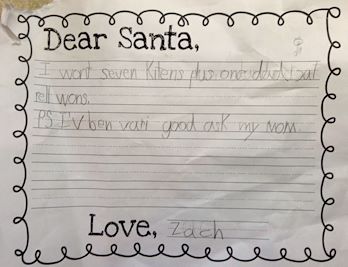 Dear Santa,
I wont seven kitens plus one
rell wons.
PS EV ben vari good ask my mom
Love, Zach